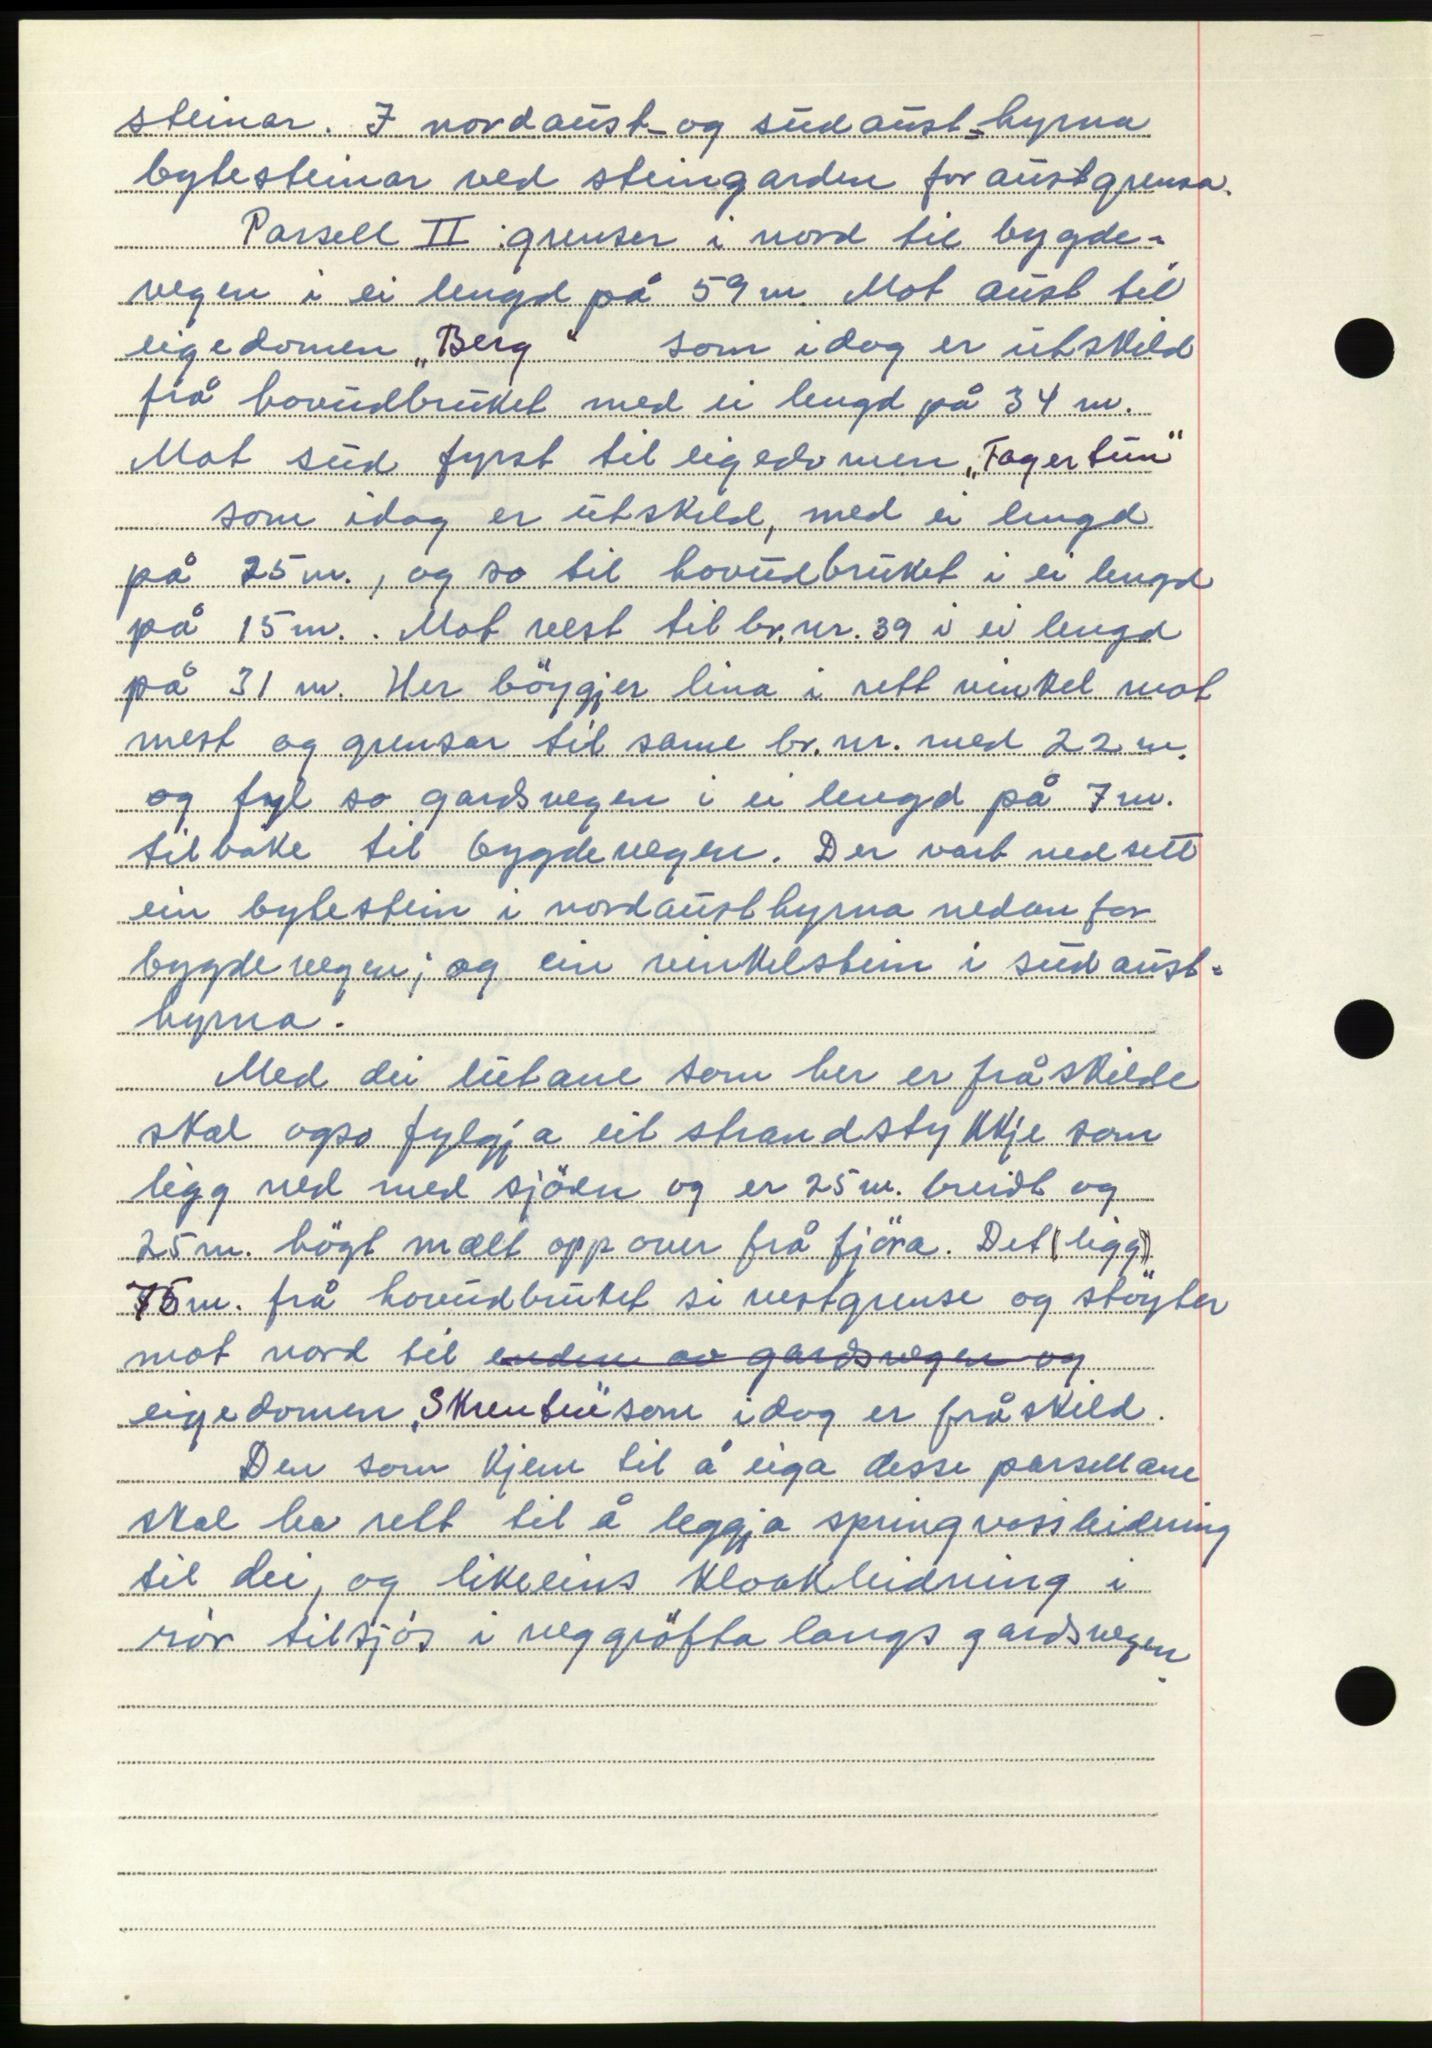 steinar. I nordaust- og sudaust-hyrna
bytesteinar ved steingarden for austgrensa.
Parsell II : grenser i nord til bygde-
vegen i ei lengd på 59 m. Mot aust til
eigedomen „Berg" som idag er utskild
frå hovudbruket med ei lengd på 34 m.
Mot sud fyrst til eigedomen „Fagertun"
som idag er utskild, med ei lengd
på 25 m., og so til hovudbruket i ei lengd
på 15 m. . Mot vest til br. nr. 39 i ei lengd
på 31 m. Her böygjer lina i rett vinkel mot
mest og grensar til same br. nr. med 22 m.
og fyl so gardsvegen i ei lengd på 7 m.
tilbake til bygdevegen. Der vart nedsett
ein bytestein i nordausthyrna nedanfor
bygdevegen; og ein vinkelstein i sudaust-
hyrna.
Med dei lutane som her er fråskilde
skal ogso fylgja eit strandstykkje som
ligg ned med sjöen og er 25 m. breidt og
25 m. högt mælt oppover frå fjöra. Det (ligg)
75 m. frå hovudbruket si vestgrense og stöyter
mot nord til enden av gardsvegen og
eigedomen „Skrenten" som idag er fråskild.
Den som kjem til å eiga desse parsellane
skal ha rett til å leggja springvassleidning
til dei, og likeeins kloakleidning i
rör tilsjös i veggröfta langs gardsvegen.